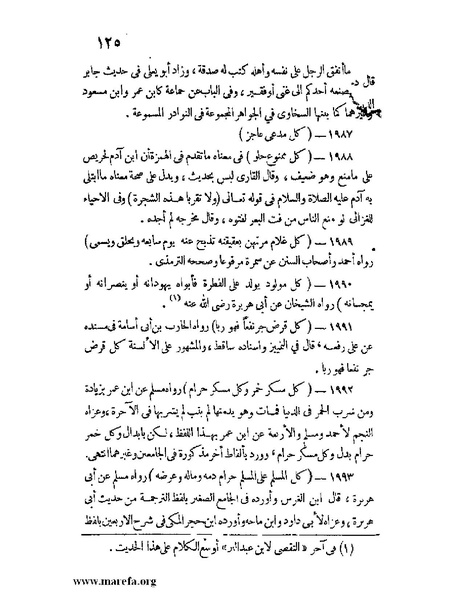 ١٢٥
ماأنفق الرجل على نفسه وأهله كتب له صدقة ، وزاد أبو يعلى فى حديث جابر
قال
يصنعه أحدكم الى غنى أوفقير ، وفى الباب عن جماعة كابن عمر وابن مسعود
كما بينها السخاوى فى الجواهر المجموعة فى النوادر المسموعة .
١٩٨٧ — ( كل مدعى عاجز )
١٩٨٨ — ( كل ممنوع حلو ) فى معناه ماتقدم فى الهمزة أن ابن آدم لحريص
على مامنع وهو ضعيف ، وقال القارى ليس بحديث ، ويدل على صحة معناه ماابتلى
به آدم عليه الصلاة والسلام فى قوله تعالى (ولا تقربا هذه الشجرة) وفى الاحياء
للغزالى لو منع الناس من فت البعر لفتوه ، وقال مخرجه لم أجده .
١٩٨٩ — ( كل غلام مرتهن بعقيقته تذبح عنه يوم سابعه ويحلق ويسمى)
رواه أحمد وأصحاب السنن عن سمرة مرفوعا وصححه الترمذى .
١٩٩٠ — ( كل مولود يولد على الفطرة فأبواه يهودانه أو ينصرانه أو
يمجسانه ) رواه الشيخان عن أبى هريرة رضى الله عنه (١) .
١٩٩١ — ( كل قرض جر نفعا فهو ربا) رواه الحارث بن أبى أسامة فى مسنده
عن على رفعه ، قال فى التمييز واسناده ساقط ، والمشهور على الألسنة كل قرض
جر نفعا فهو ربا .
١٩٩٢ — ( كل مسكر خمر وكل مسكر حرام ) رواه مسلم عن ابن عمر بزيادة
ومن شرب الخمر فى الدنيا فمات وهو يدمنها لم يتب لم يشربها فى الآخرة ، وعزاه
النجم لأحمد ومسلم والأربعة عن ابن عمر بهذا اللفظ ، لكن بابدال وكل خمر
حرام بدل وكل مسكر حرام ، وورد بألفاظ أخر مذكورة فى الجامعين وغيرهما انتهى.
١٩٩٣ — ( كل المسلم على المسلم حرام دمه وماله وعرضه ) رواه مسلم عن أبى
هريرة ، قال ابن الغرس وأورده فى الجامع الصغير بلفظ الترجمة من حديث أبى
هريرة ، وعزاه لأبى داود وابن ماجه وأورده ابن حجر المكى فى شرح الاربعين بلفظ
(١) فى آخر «التقصى لابن عبدالبر» أوسع الكلام على هذا الحديث .
www.marefa.org